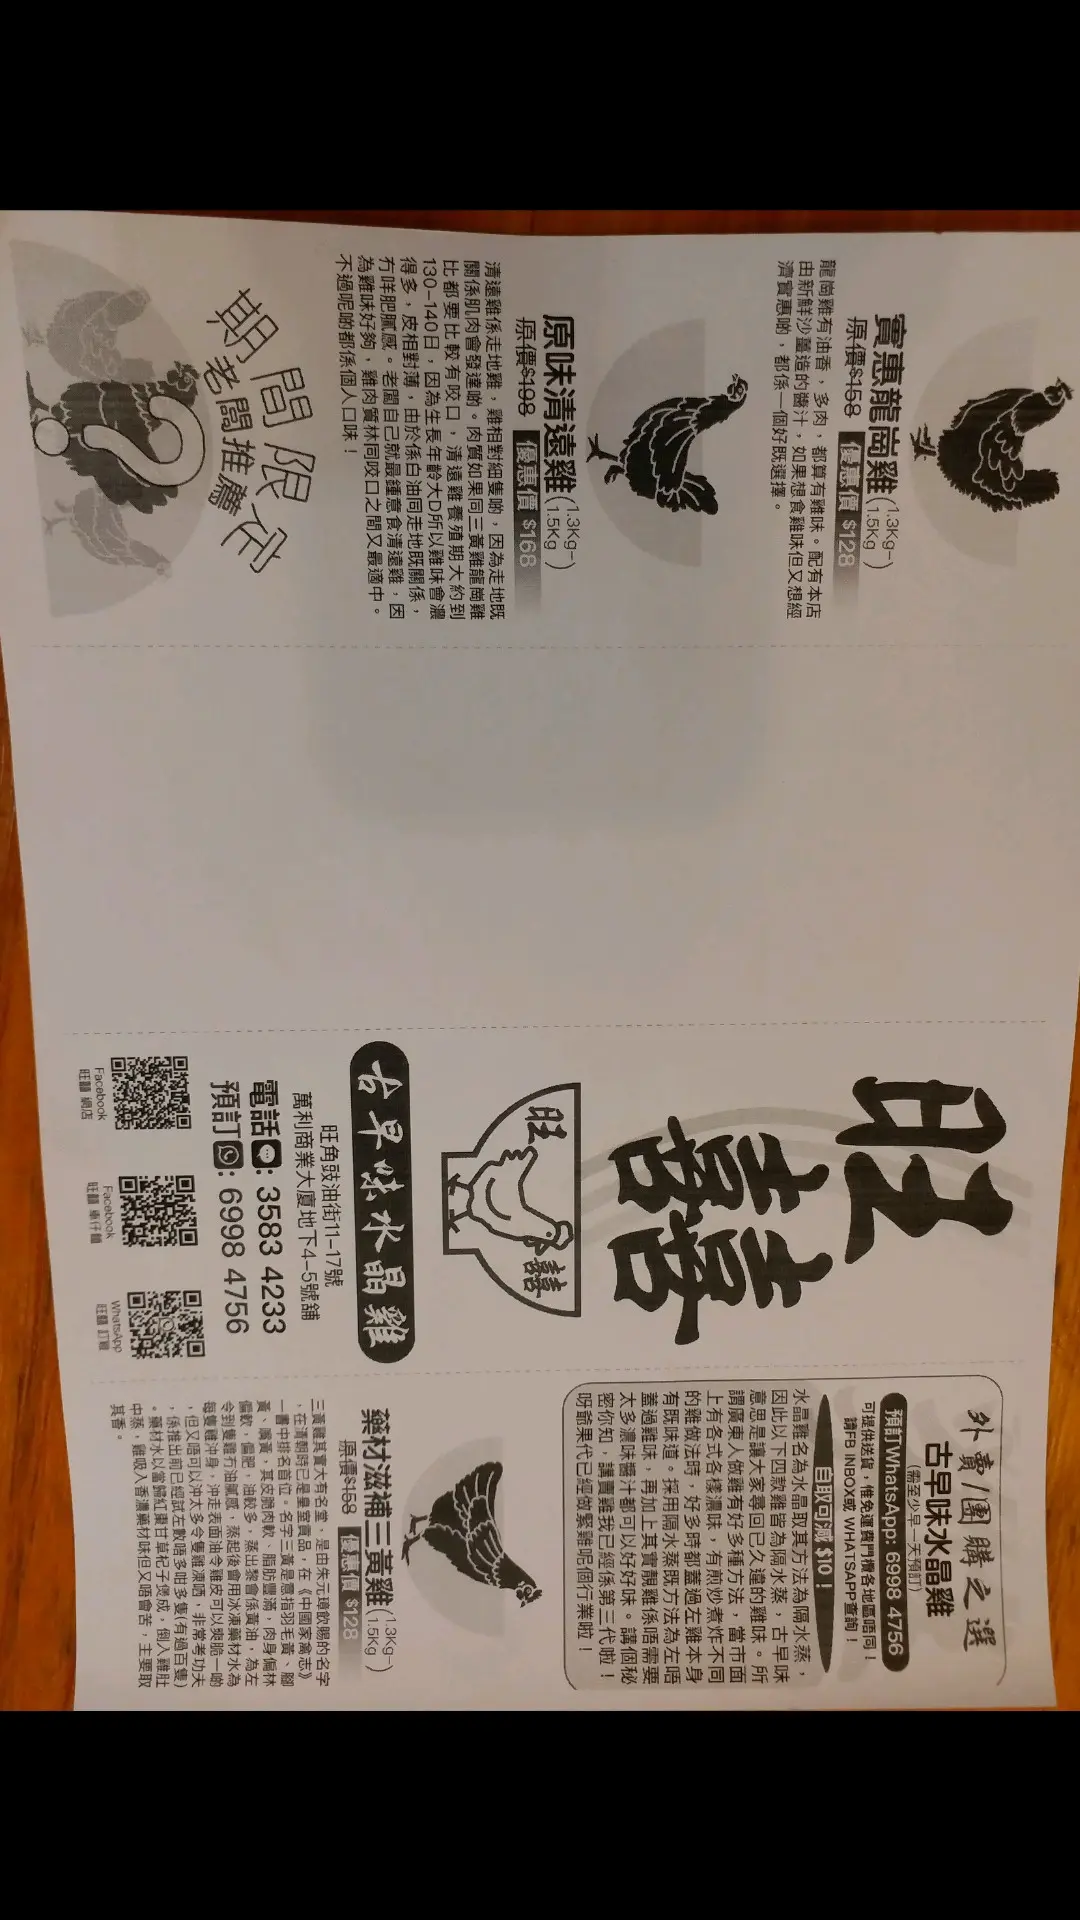 實惠龍崗雞(1.3Kg-1.5Kg)
原價$158 優惠價 $128
龍崗雞有油香，多肉，都算有雞味。配有本店
由新鮮沙薑造的醬汁，如果想食雞味但又想經
濟實惠啲，都係一個好既選擇。
原味清遠雞(1.3Kg-1.5Kg)
原價$198 優惠價 $168
清遠雞係走地雞，雞相對細隻啲，因為走地既
關係肌肉會發達啲。肉質如果同三黃雞龍崗雞
比都要比較有咬口，清遠雞養殖期大約到
130-140日，因為生長年齡大D所以雞味會濃
得多，皮相對薄，由於係白油同走地既關係，
冇咩肥膩感。老闆自己就最鍾意食清遠雞，因
為雞味好夠，雞肉質林同咬口之間又最適中。
不過呢啲都係個人口味！
期間限定
老闆推薦
?
旺囍
旺 囍
古早味水晶雞
旺角豉油街11-17號
萬利商業大廈地下4-5號舖
電話: 3583 4233
預訂: 6998 4756
Facebook
旺囍 網店
Facebook
旺囍 車仔麵
WhatsApp
旺囍 訂雞
外賣/團購之選
古早味水晶雞
(需至少早一天預訂)
預訂WhatsApp: 6998 4756
可提供送貨，惟免運費門檻各地區唔同！
請FB INBOX或 WHATSAPP查詢！
自取可減 $10！
水晶雞名為水晶取其方法為隔水蒸，
因此以下四款雞皆為隔水蒸，古早味
意思是讓大家尋回已久違的雞味。所
謂廣東人做雞有好多種方法，當市面
上有各式各樣濃味，有煎炒煮炸不同
的雞做法時，好多時都蓋過左雞本身
有既味道。採用隔水蒸既方法為左唔
蓋過雞味，再加上其實靚雞係唔需要
太多濃味醬汁都可以好好味。講個秘
密你知，講賣雞我已經係第三代啦！
呀爺果代已經做緊雞呢個行業啦！
藥材滋補三黃雞(1.3Kg-1.5Kg)
原價$158 優惠價 $128
三黃雞其實大有名堂，是由朱元璋欽賜的名字
，在清朝時已是皇室貢品，在《中國家禽志》
一書中排名首位。名字三黃是意指羽毛黃、腳
黃、嘴黃，其皮脆肉軟、脂肪豐滿，肉身偏林
偏軟，偏肥，油較多，蒸出黎會係黃油，為左
令到隻雞冇油膩感，蒸起後會用冰凍藥材水為
每隻雞沖身，沖走表面油令雞皮可以爽脆一啲
，但又唔可以沖太多令隻雞凍晒，非常考功夫
，係推出前已經試左數唔多咁多隻(有過百隻)
。藥材水以當歸紅棗甘草杞子煲成，倒入雞肚
中蒸，雞吸入香濃藥材味但又唔會苦，主要取
其香。